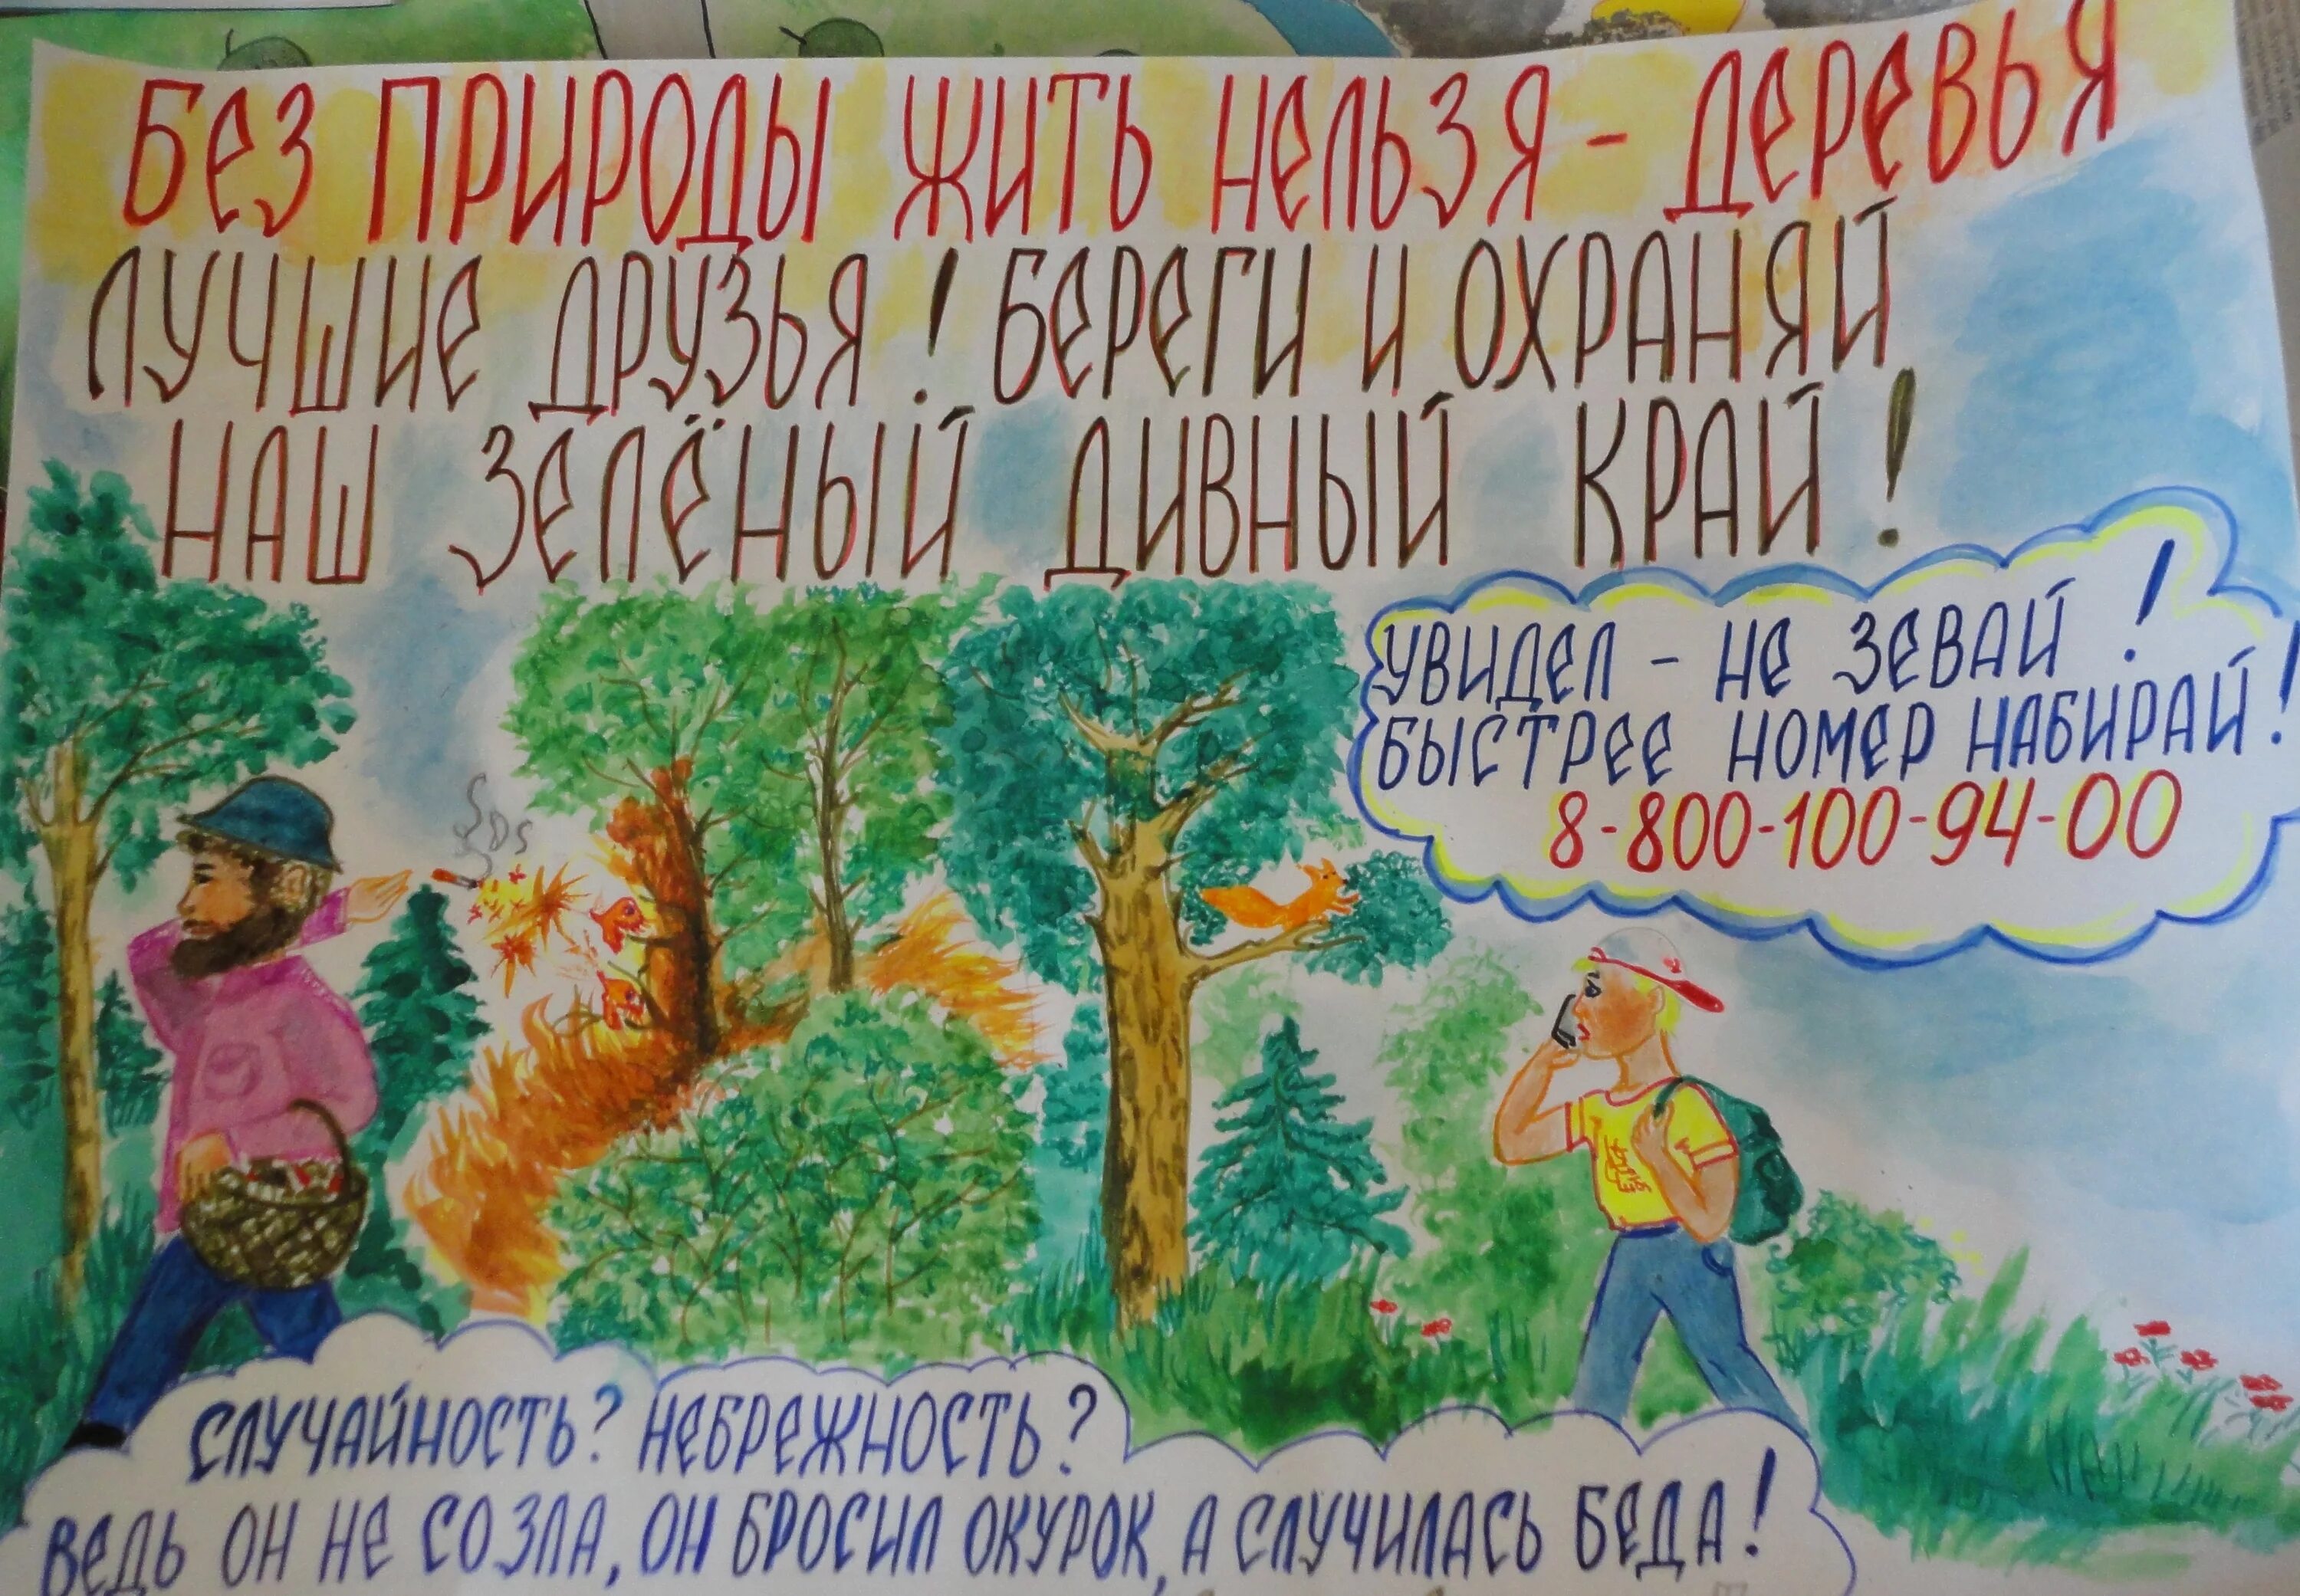 БЕЗ ПРИРОДЫ ЖИТЬ НЕЛЬЗЯ - ДЕРЕВЬЯ
ЛУЧШИЕ ДРУЗЬЯ! БЕРЕГИ И ОХРАНЯЙ
НАШ ЗЕЛЁНЫЙ ДИВНЫЙ КРАЙ!
УВИДЕЛ - НЕ ЗЕВАЙ!
БЫСТРЕЕ НОМЕР НАБИРАЙ!
8-800-100-94-00
SOS
СЛУЧАЙНОСТЬ? НЕБРЕЖНОСТЬ?
ВЕДЬ ОН НЕ СО ЗЛА, ОН БРОСИЛ ОКУРОК, А СЛУЧИЛАСЬ БЕДА!